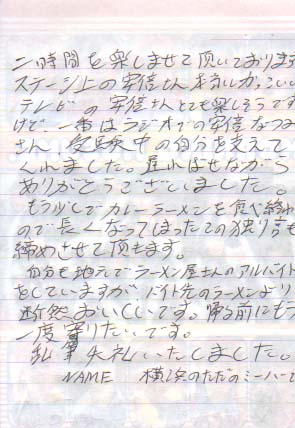 二時間を楽しませて頂いております
ステージ上の安倍さん
テレビの安倍さんとても楽しそうです
けど、一番はラジオでの安倍なつみ
さん、受験中の自分を支えて
くれました。遅ればせながら
ありがとうございました。
もう少しでカレーラーメンを食べ終わ
るので長くなってしまったこの独り言も
締めさせて頂きます。
自分も地元でラーメン屋さんのアルバイト
をしていますがバイト先のラーメンより
断然おいしいです。帰る前にも
一度寄りたいです。
乱筆失礼いたしました。
NAME 横浜のただのミーハー